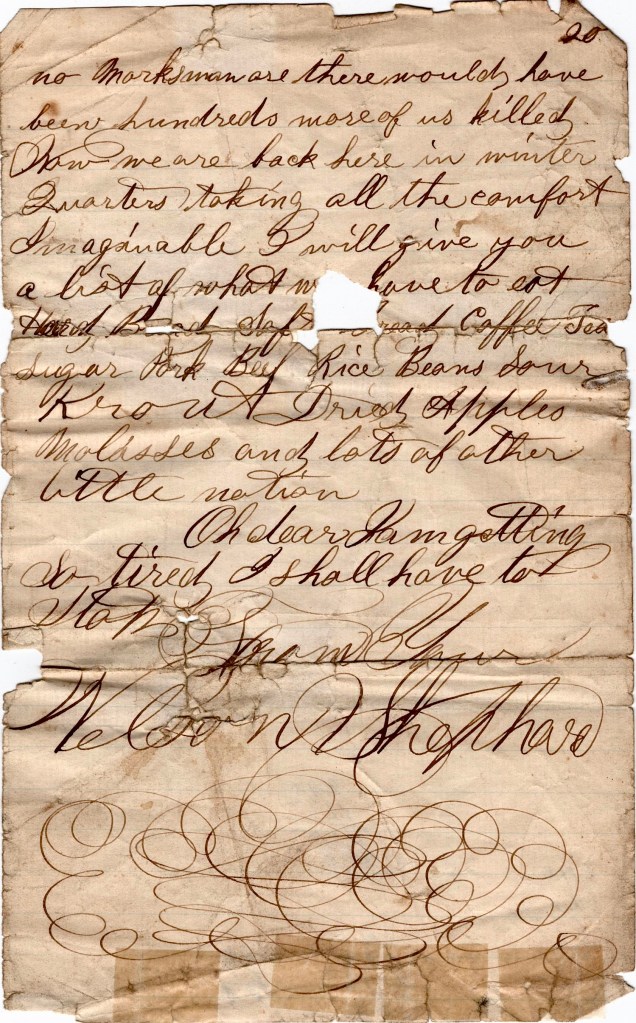 20
no Marksman are there would have
been hundreds more of us killed.
Now we are back here in winter
Quarters taking all the comfort
Imaganable I will give you
a list of what w have to eat
Hard B ad Sof read Coffee Tea
Sugar Pork Beef Rice Beans Sour
Krout Dried Apples
Molasses and lots of other
little notion
Oh dear I am getting
So tired I shall have to
Stop
From Your
Nelson Shephard